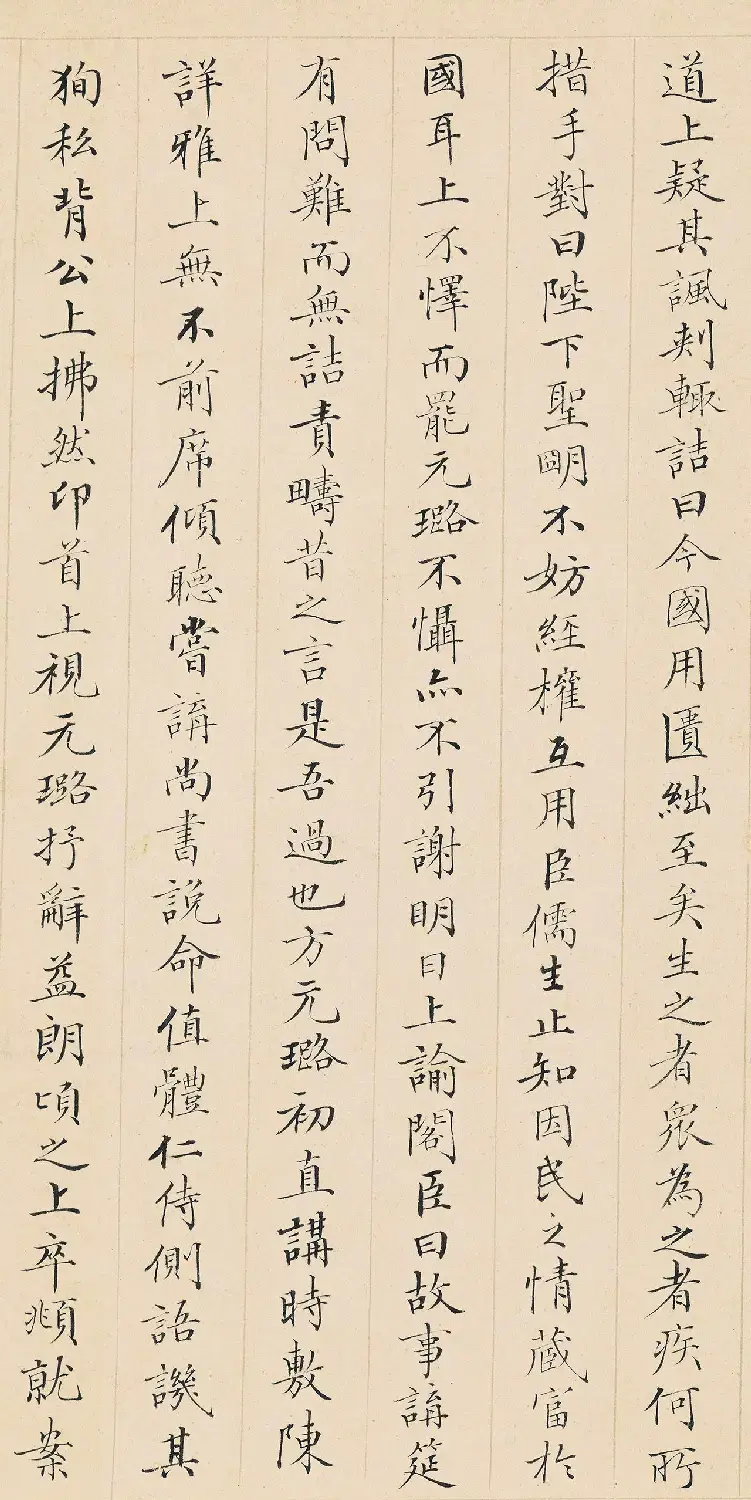 道上疑其諷刺輒詰曰今國用匱絀至矣生之者衆為之者疾何所
措手對曰陛下聖明不妨經權互用臣儒生止知因民之情藏富於
國耳上不懌而罷元璐不懾亦不引謝明日上諭閣臣曰故事講筵
有問難而無詰責疇昔之言是吾過也方元璐初直講時敷陳
詳雅上無不前席傾聽嘗講尚書說命值體仁侍側語譏其
狥私背公上拂然卬首上視元璐抒辭益朗頃之上卒頫就案